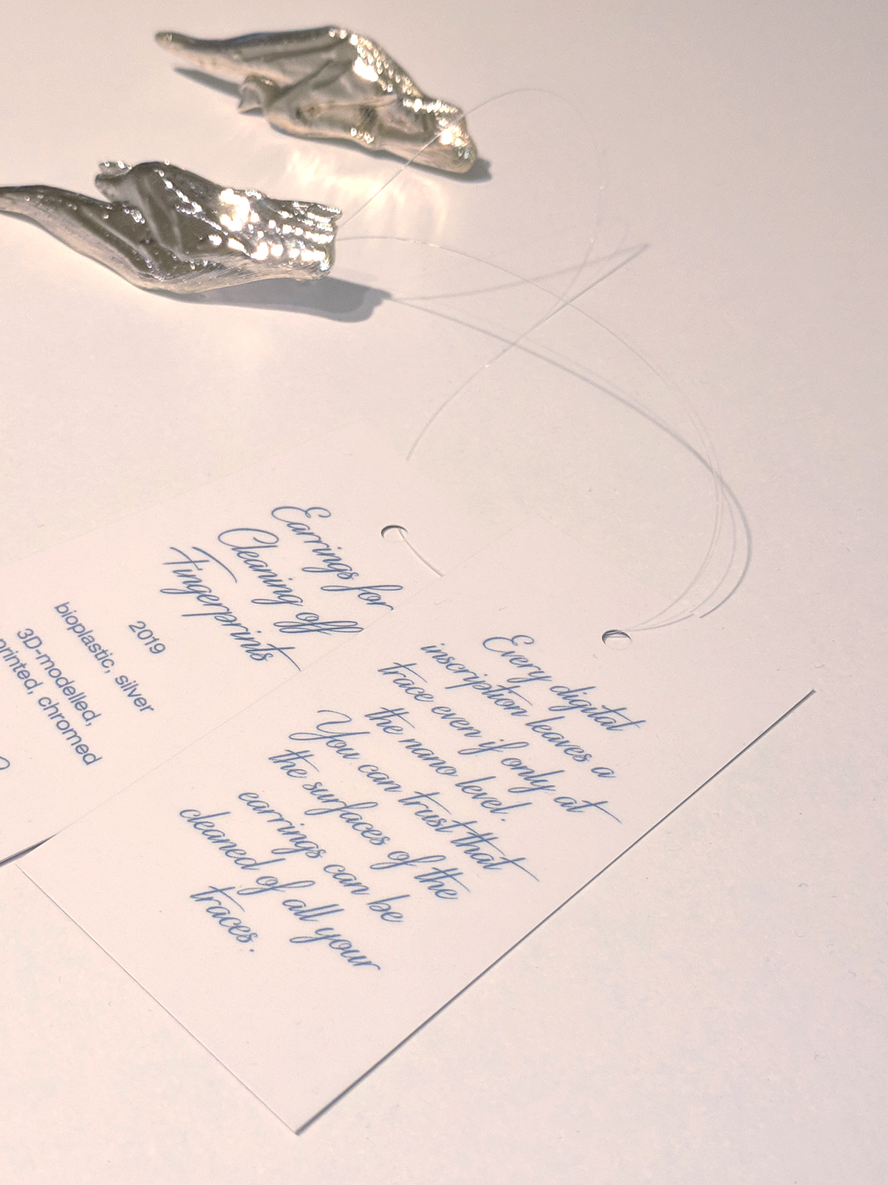 Earrings for
Cleaning off
Fingerprints
2019
bioplastic, silver
3D-modelled,
printed, chromed
Every digital
inscription leaves a
trace even if only at
the nano level.
You can trust that
the surfaces of the
earrings can be
cleaned of all your
traces.